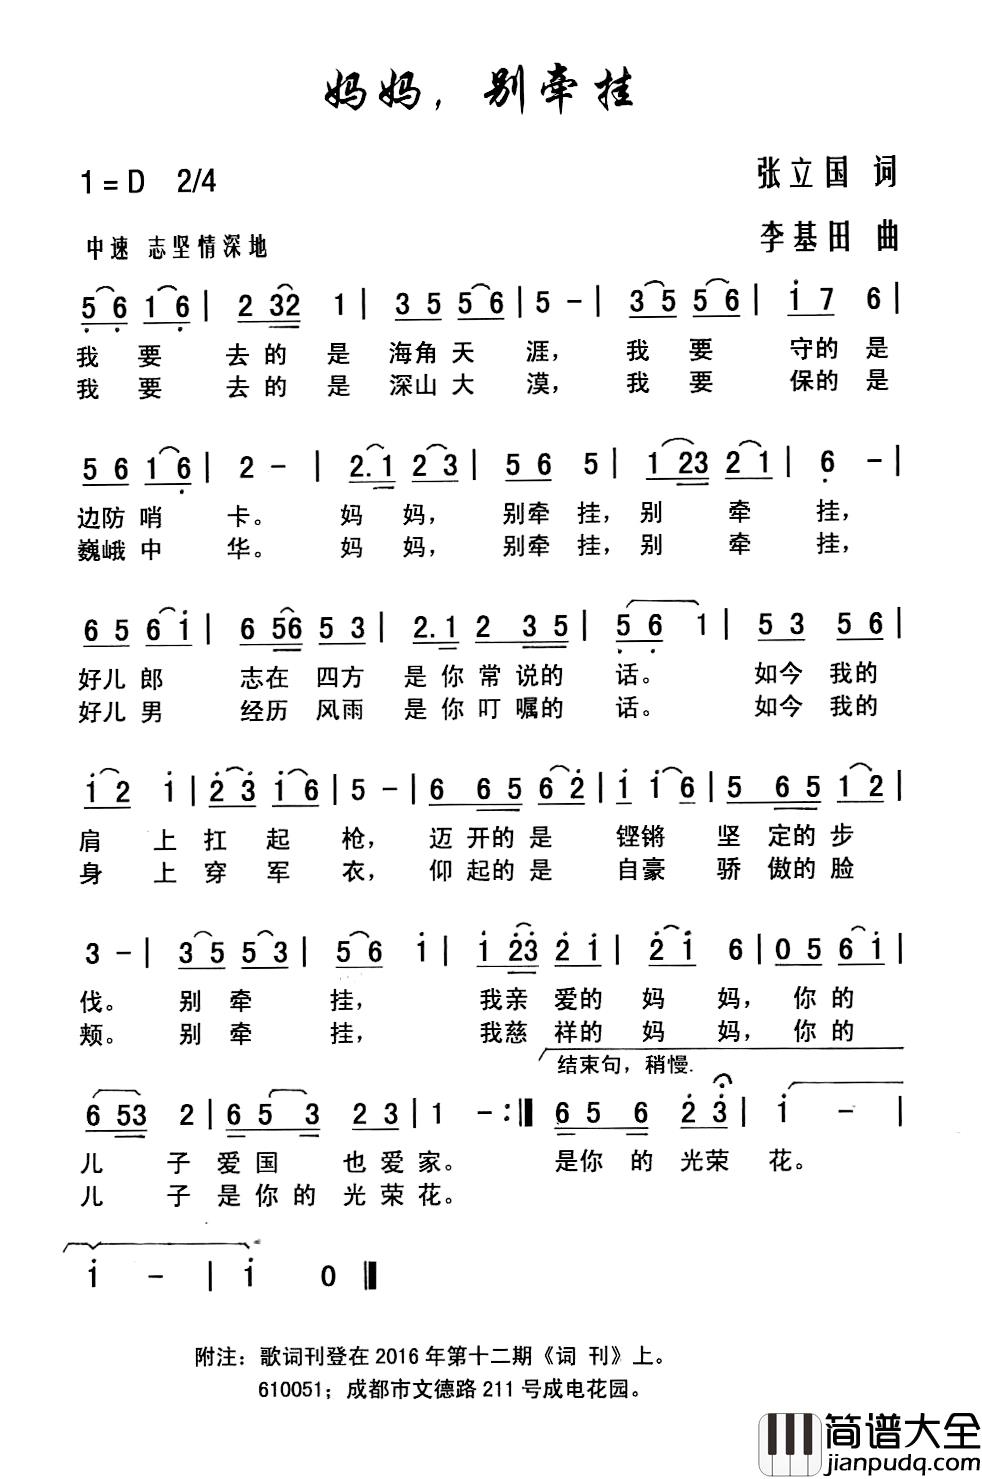 妈妈，别牵挂
1=D 2/4
张立国 词
中速 志坚情深地
李基田 曲
5̣ 6̣ 1 6̣ | 2 32 1 | 3 5 5 6 | 5 - | 3 5 5 6 | i 7 6 |
我 要 去 的 是 海角 天 涯， 我 要 守的 是
我 要 去 的 是 深山 大 漠， 我 要 保的 是
5 6 1 6̣ | 2 - | 2. 1 2 3 | 5 6 5 | 1 23 2 1 | 6̣ - |
边防 哨 卡。 妈 妈， 别牵 挂， 别 牵 挂，
巍峨 中 华。 妈 妈， 别牵 挂， 别 牵 挂，
6 5 6 i | 6 56 5 3 | 2. 1 2 3 5 | 5̣ 6̣ 1 | 5 3 5 6 |
好儿 郎 志在 四方 是 你 常 说的 话。 如今 我的
好儿 男 经历 风雨 是 你 叮 嘱的 话。 如今 我的
i 2̇ i | 2̇ 3̇ i 6 | 5 - | 6 6 5 6 2̇ | i i 6 | 5 6 5 i 2̇ |
肩 上 扛 起 枪， 迈 开的 是 铿锵 坚 定的 步
身 上 穿 军 衣， 仰 起的 是 自豪 骄 傲的 脸
3 - | 3 5 5 3 | 5 6 i | i 2̇3̇ 2̇ i | 2̇ i 6 | 0 5 6 i |
伐。 别 牵 挂， 我亲 爱的 妈 妈， 你 的
颊。 别 牵 挂， 我慈 祥的 妈 妈， 你 的
结束句，稍慢.
6 53 2 | 6 5 3 2 3 | 1 - :‖ 6 5 6 2̇ 3̇ | i - |
儿 子 爱 国 也 爱 家。 是你 的 光荣 花。
儿 子 是 你 的 光 荣 花。
i - | i 0 ‖
附注：歌词刊登在2016年第十二期《词 刊》上。
610051；成都市文德路211号成电花园。
简谱大全
jianpudq.com